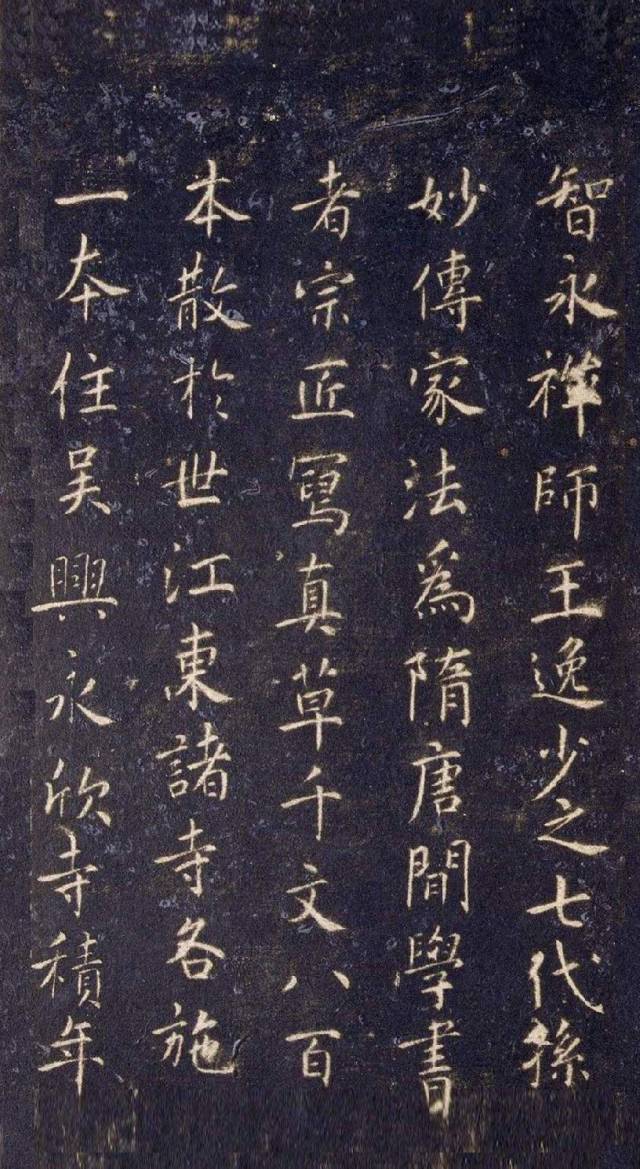 智永禅師王逸少之七代孫
妙傳家法爲隋唐間學書
者宗匠寫真草千文八百
本散於世江東諸寺各施
一本住吴興永欣寺積年